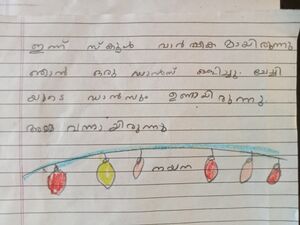 ഇന്ന് സ്കൂൾ വാർഷികമായിരുന്നു
ഞാൻ ഒരു ഡാൻസ് കളിച്ചു. ചേച്ചി
യുടെ ഡാൻസും ഉണ്ടായിരുന്നു
അമ്മ വന്നായിരുന്നു
നയന